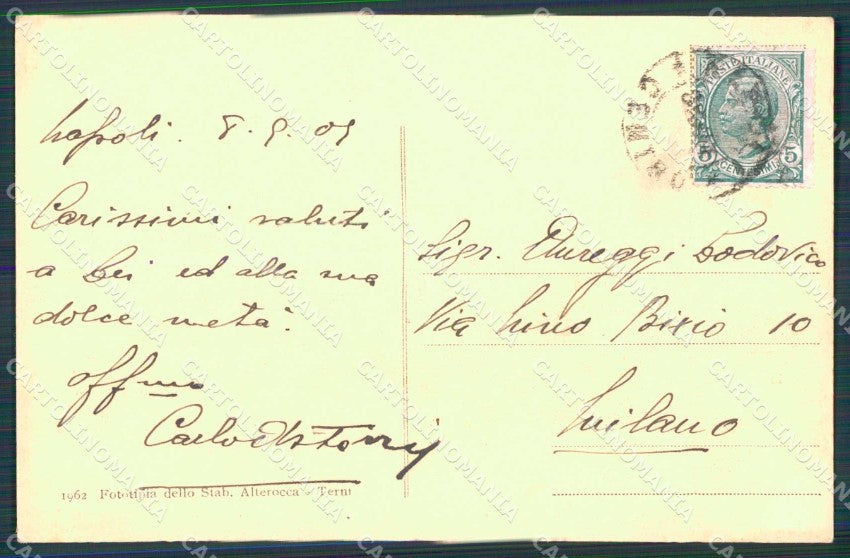 Napoli. 8.9.09
Carissimi saluti
a Lei ed alla sua
dolce metà.
Aff mo
Carlo
1962 Fototipia dello Stab. Alterocca - Terni
POSTE ITALIANE
5 5
CENTESIMI
Sigr. Aureggi Lodovico
Via Nino Bixio 10
Milano
CARTOLINOMANIA